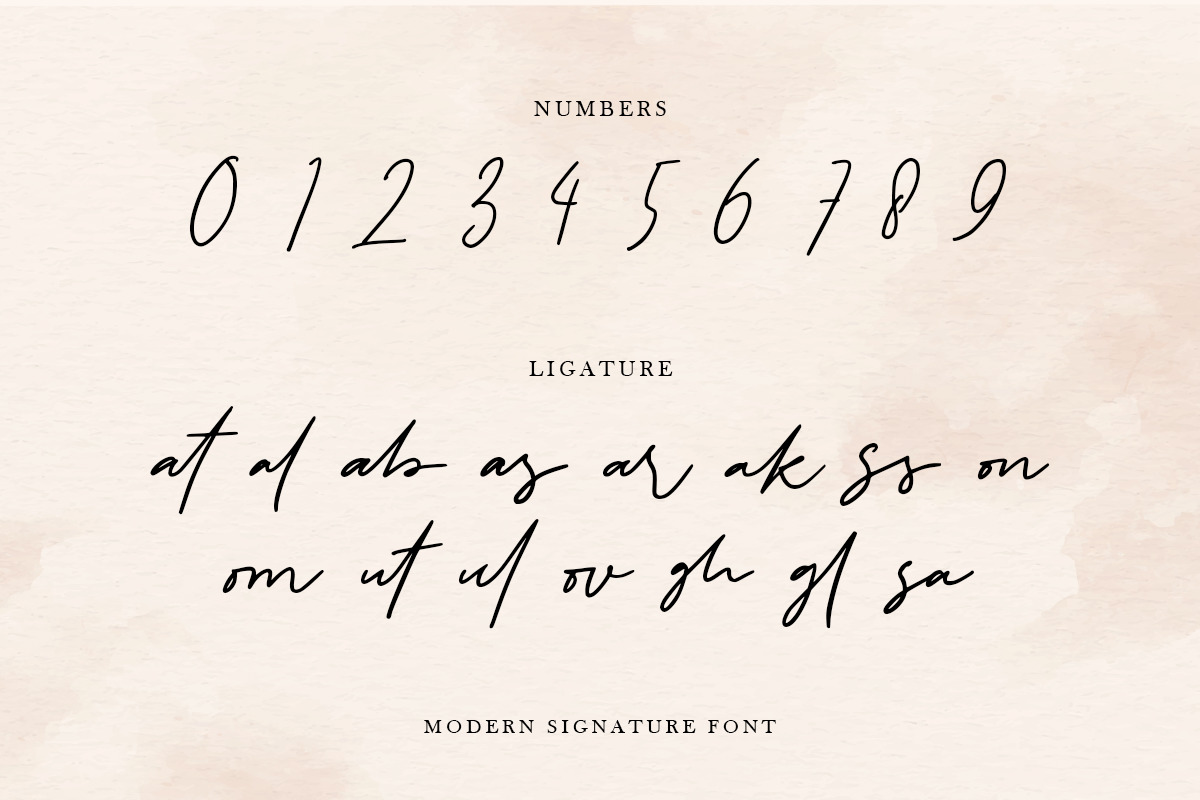 NUMBERS
0 1 2 3 4 5 6 7 8 9
LIGATURE
at al ab as ar ak ss on
om ut ul ov gh gl sa
MODERN SIGNATURE FONT